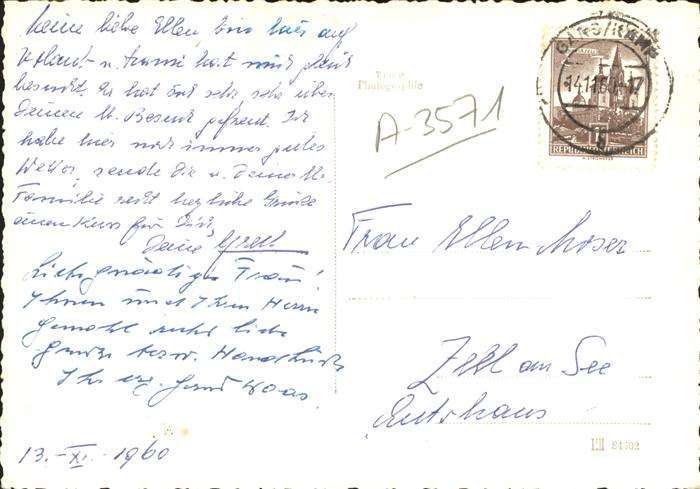 Meine liebe Ellen, bin hier auf
Urlaub u.
besucht. Er hat sich sehr, sehr über
Deinen lb. Besuch gefreut. Ich
habe hier noch immer gutes
Wetter, sende Dir u. Deiner lb.
Familie recht herzliche Grüsse
einen Kuss für Dich,
Deine Gretl
Liebe gnädige Frau!
Ihnen und Ihrem Herrn
Gemahl recht liebe
Grüsse bzw. Handküsse
Ihr erg.
13.-XI.-1960
A-3571
GARS/KAMP
14.11.60-17
REPUBLIK ÖSTERREICH
Photographie
Frau Ellen Moser
Zell am See
Amtshaus
84302